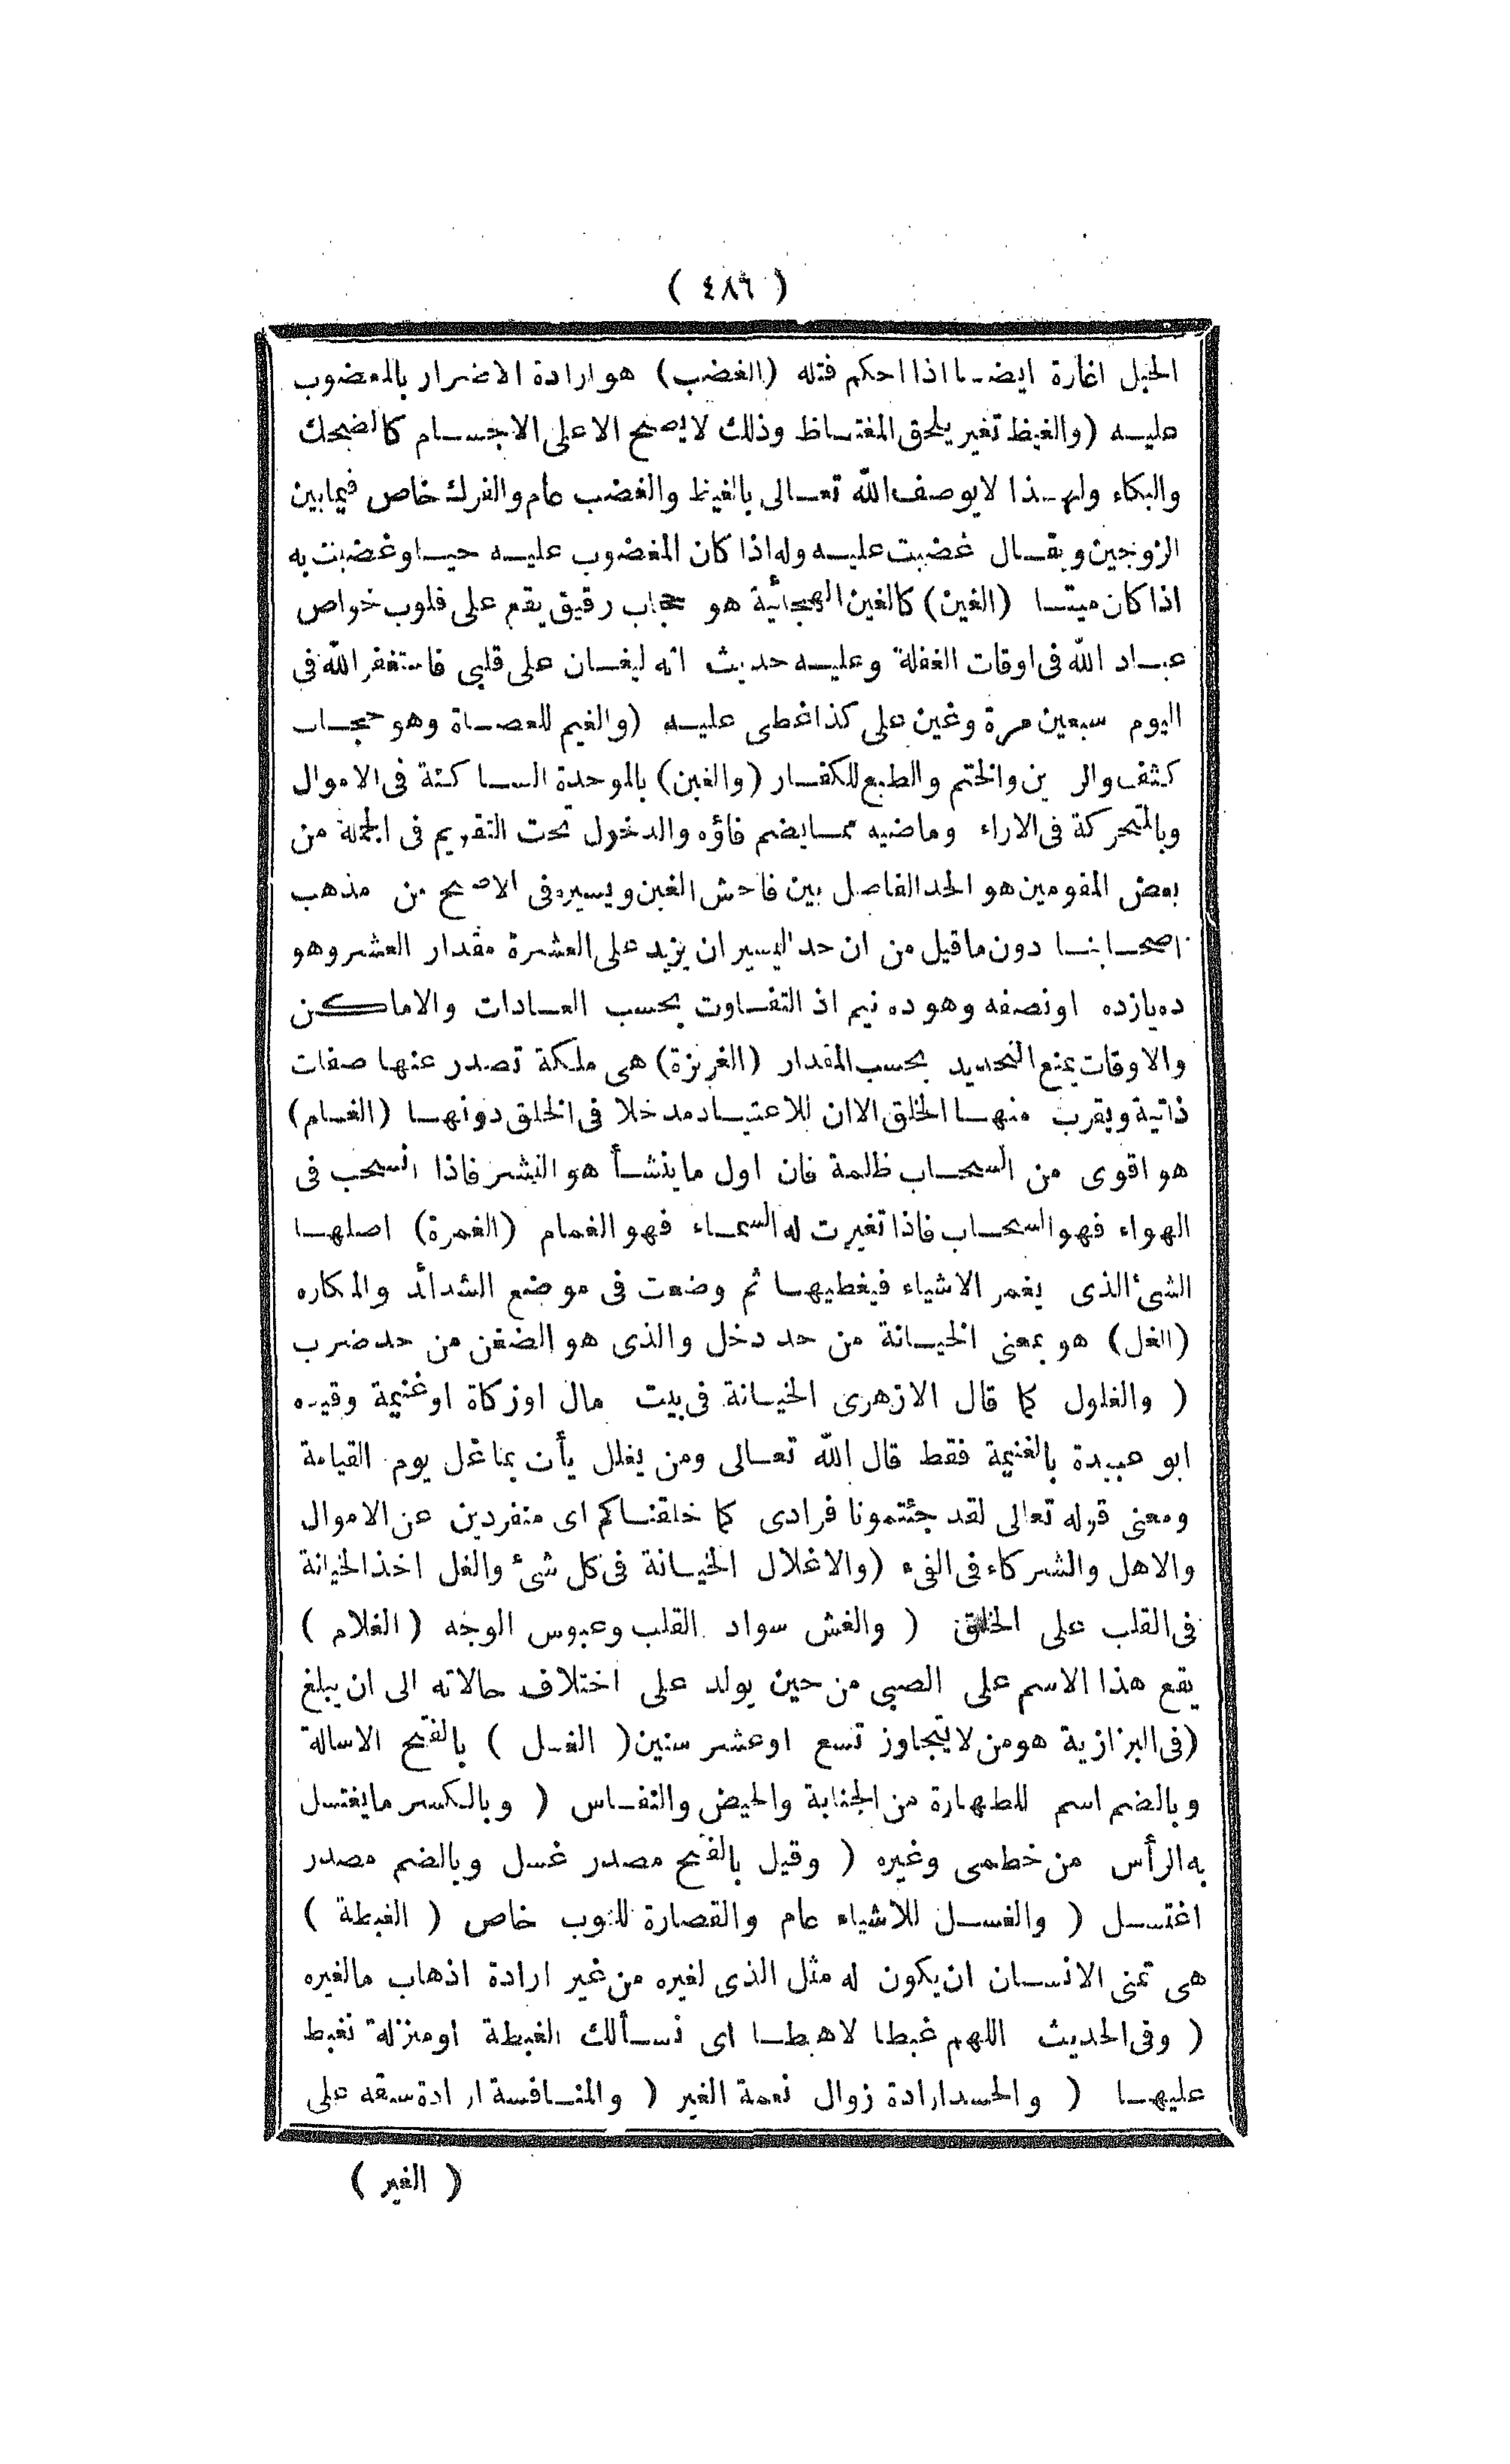 ( ٤٨٦ )
الحبل اغارة ايضا اذا احكم فتله (الغضب) هو ارادة الاضرار بالمغضوب
عليه (والغيظ تغير يلحق المغتاظ وذلك لا يصح الا على الاجسام كالضحك
والبكاء ولهذا لا يوصف الله تعالى بالغيظ والغضب عام والفرك خاص فيما بين
الزوجين ويقال غضبت عليه وله اذا كان المغضوب عليه حيا وغضبت به
اذا كان ميتا (الغين) كالغين الهجائية هو حجاب رقيق يقع على قلوب خواص
عباد الله فى اوقات الغفلة وعليه حديث انه ليغان على قلبى فاستغفر الله فى
اليوم سبعين مرة وغين على كذا غطى عليه (والغيم للعصاة وهو حجاب
كثف والرين والختم والطبع للكفار (والغبن) بالموحدة الساكنة فى الاموال
وبالمتحركة فى الاراء وماضيه مما يضم فاؤه والدخول تحت التقويم فى الجملة من
بعض المقومين هو الحد الفاصل بين فاحش الغبن ويسيره فى الاصح من مذهب
اصحابنا دون ما قيل من ان حد اليسير ان يزيد على العشرة مقدار العشر وهو
ده يازده او نصفه وهو ده نيم اذ التفاوت بحسب العادات والاماكن
والاوقات يمنع التحديد بحسب المقدار (الغريزة) هى ملكة تصدر عنها صفات
ذاتية ويقرب منها الخلق الا ان للاعتياد مدخلا فى الخلق دونها (الغمام)
هو اقوى من السحاب ظلمة فان اول ما ينشأ هو النشر فاذا انسحب فى
الهواء فهو السحاب فاذا تغيرت له السماء فهو الغمام (الغمرة) اصلها
الشئ الذى يغمر الاشياء فيغطيها ثم وضعت فى موضع الشدائد والمكاره
(الغل) هو بمعنى الخيانة من حد دخل والذى هو الضغن من حد ضرب
( والغلول كما قال الازهرى الخيانة فى بيت مال او زكاة او غنيمة وقيده
ابو عبيدة بالغنيمة فقط قال الله تعالى ومن يغلل يأت بما غل يوم القيامة
ومعنى قوله تعالى لقد جئتمونا فرادى كما خلقناكم اى منفردين عن الاموال
والاهل والشركاء فى الغىء (والاغلال الخيانة فى كل شئ والغل اخذ الخيانة
فى القلب على الخلق ( والغش سواد القلب وعبوس الوجه ( الغلام )
يقع هذا الاسم على الصبى من حين يولد على اختلاف حالاته الى ان يبلغ
(فى البزازية هو من لا يتجاوز تسع او عشر سنين ( الغسل ) بالفتح الاسالة
وبالضم اسم للطهارة من الجنابة والحيض والنفاس ( وبالكسر ما يغتسل
به الرأس من خطمى وغيره ( وقيل بالفتح مصدر غسل وبالضم مصدر
اغتسل ( والغسل للاشياء عام والقصارة للثوب خاص ( الغبطة )
هى تمنى الانسان ان يكون له مثل الذى لغيره من غير ارادة اذهاب ما لغيره
( وفى الحديث اللهم غبطا لا هبطا اى نسألك الغبطة او منزلة نغبط
عليها ( والحسد ارادة زوال نعمة الغير ( والمنافسة ارادة سبقه على
( الغير )